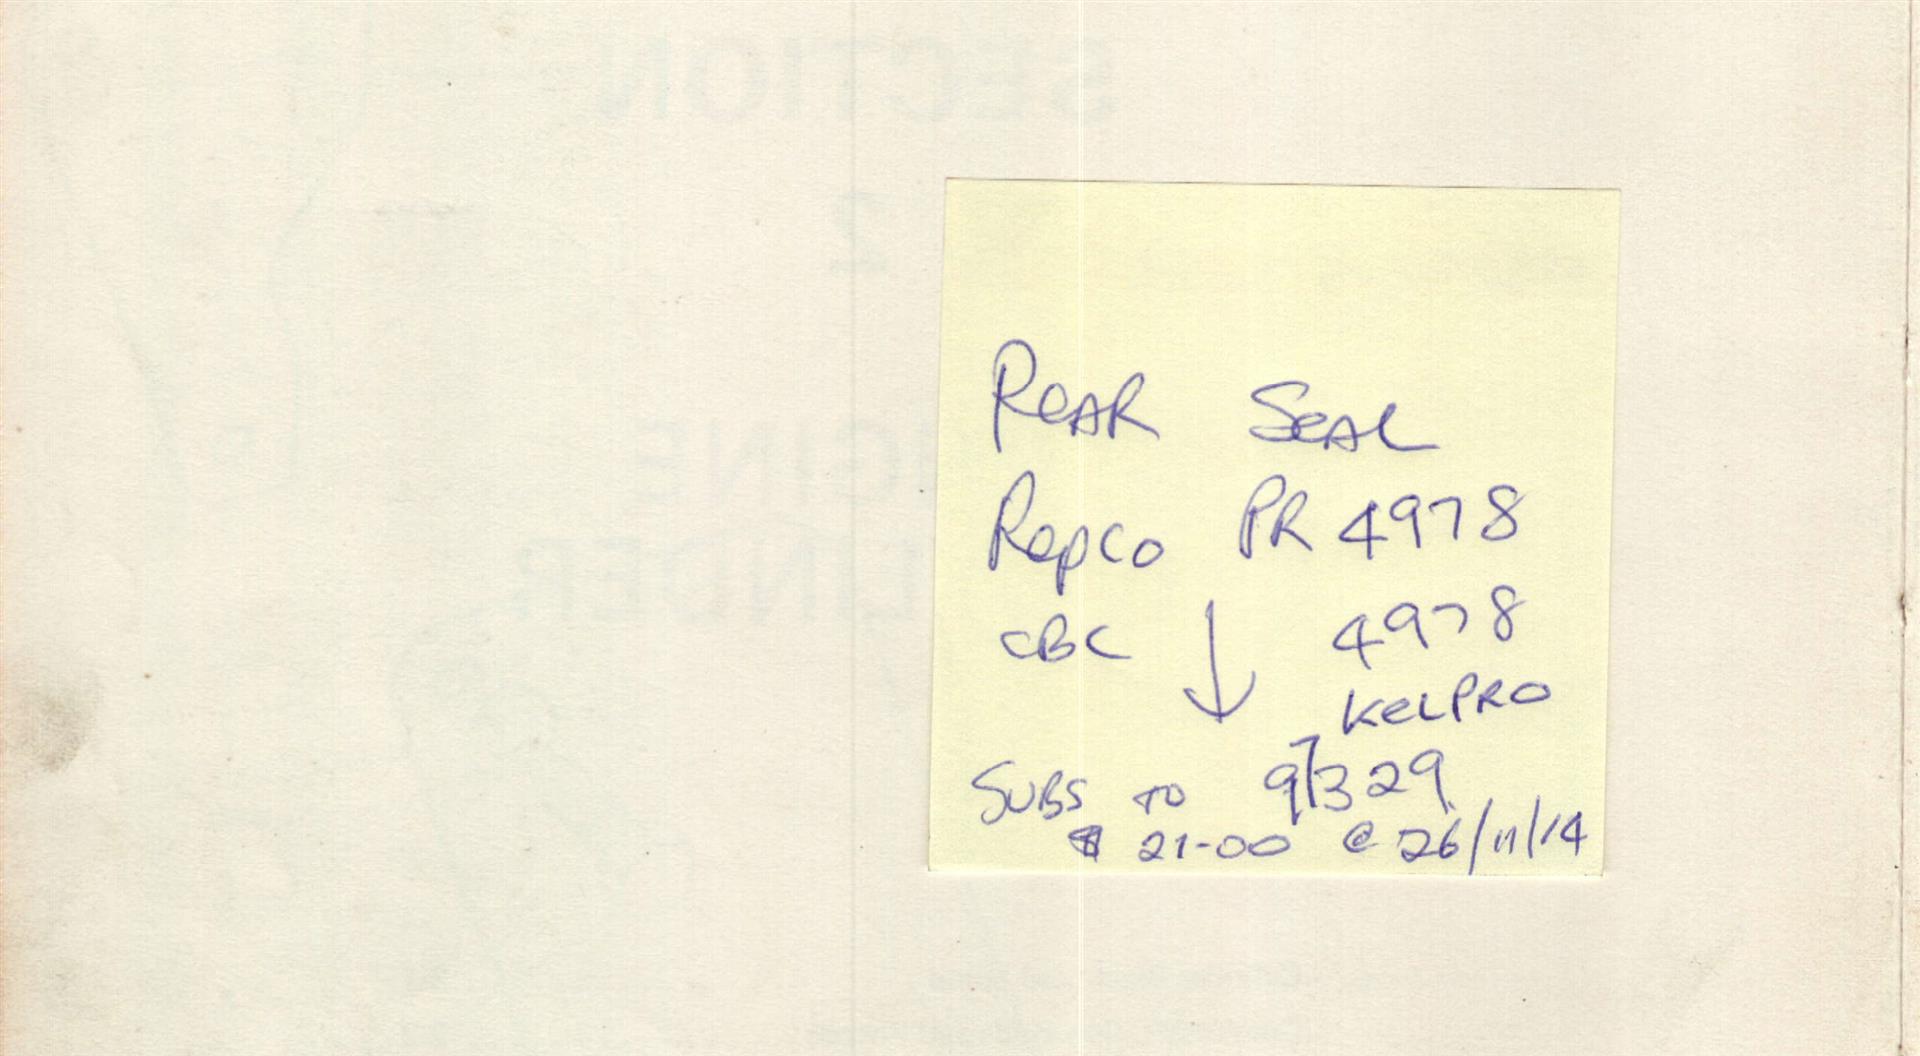 SECTION
2
Rear Seal
Repco PR 4978
CBC ↓ 4978
KELPRO
SUBS TO 97329
$ 21-00 @ 26/11/14